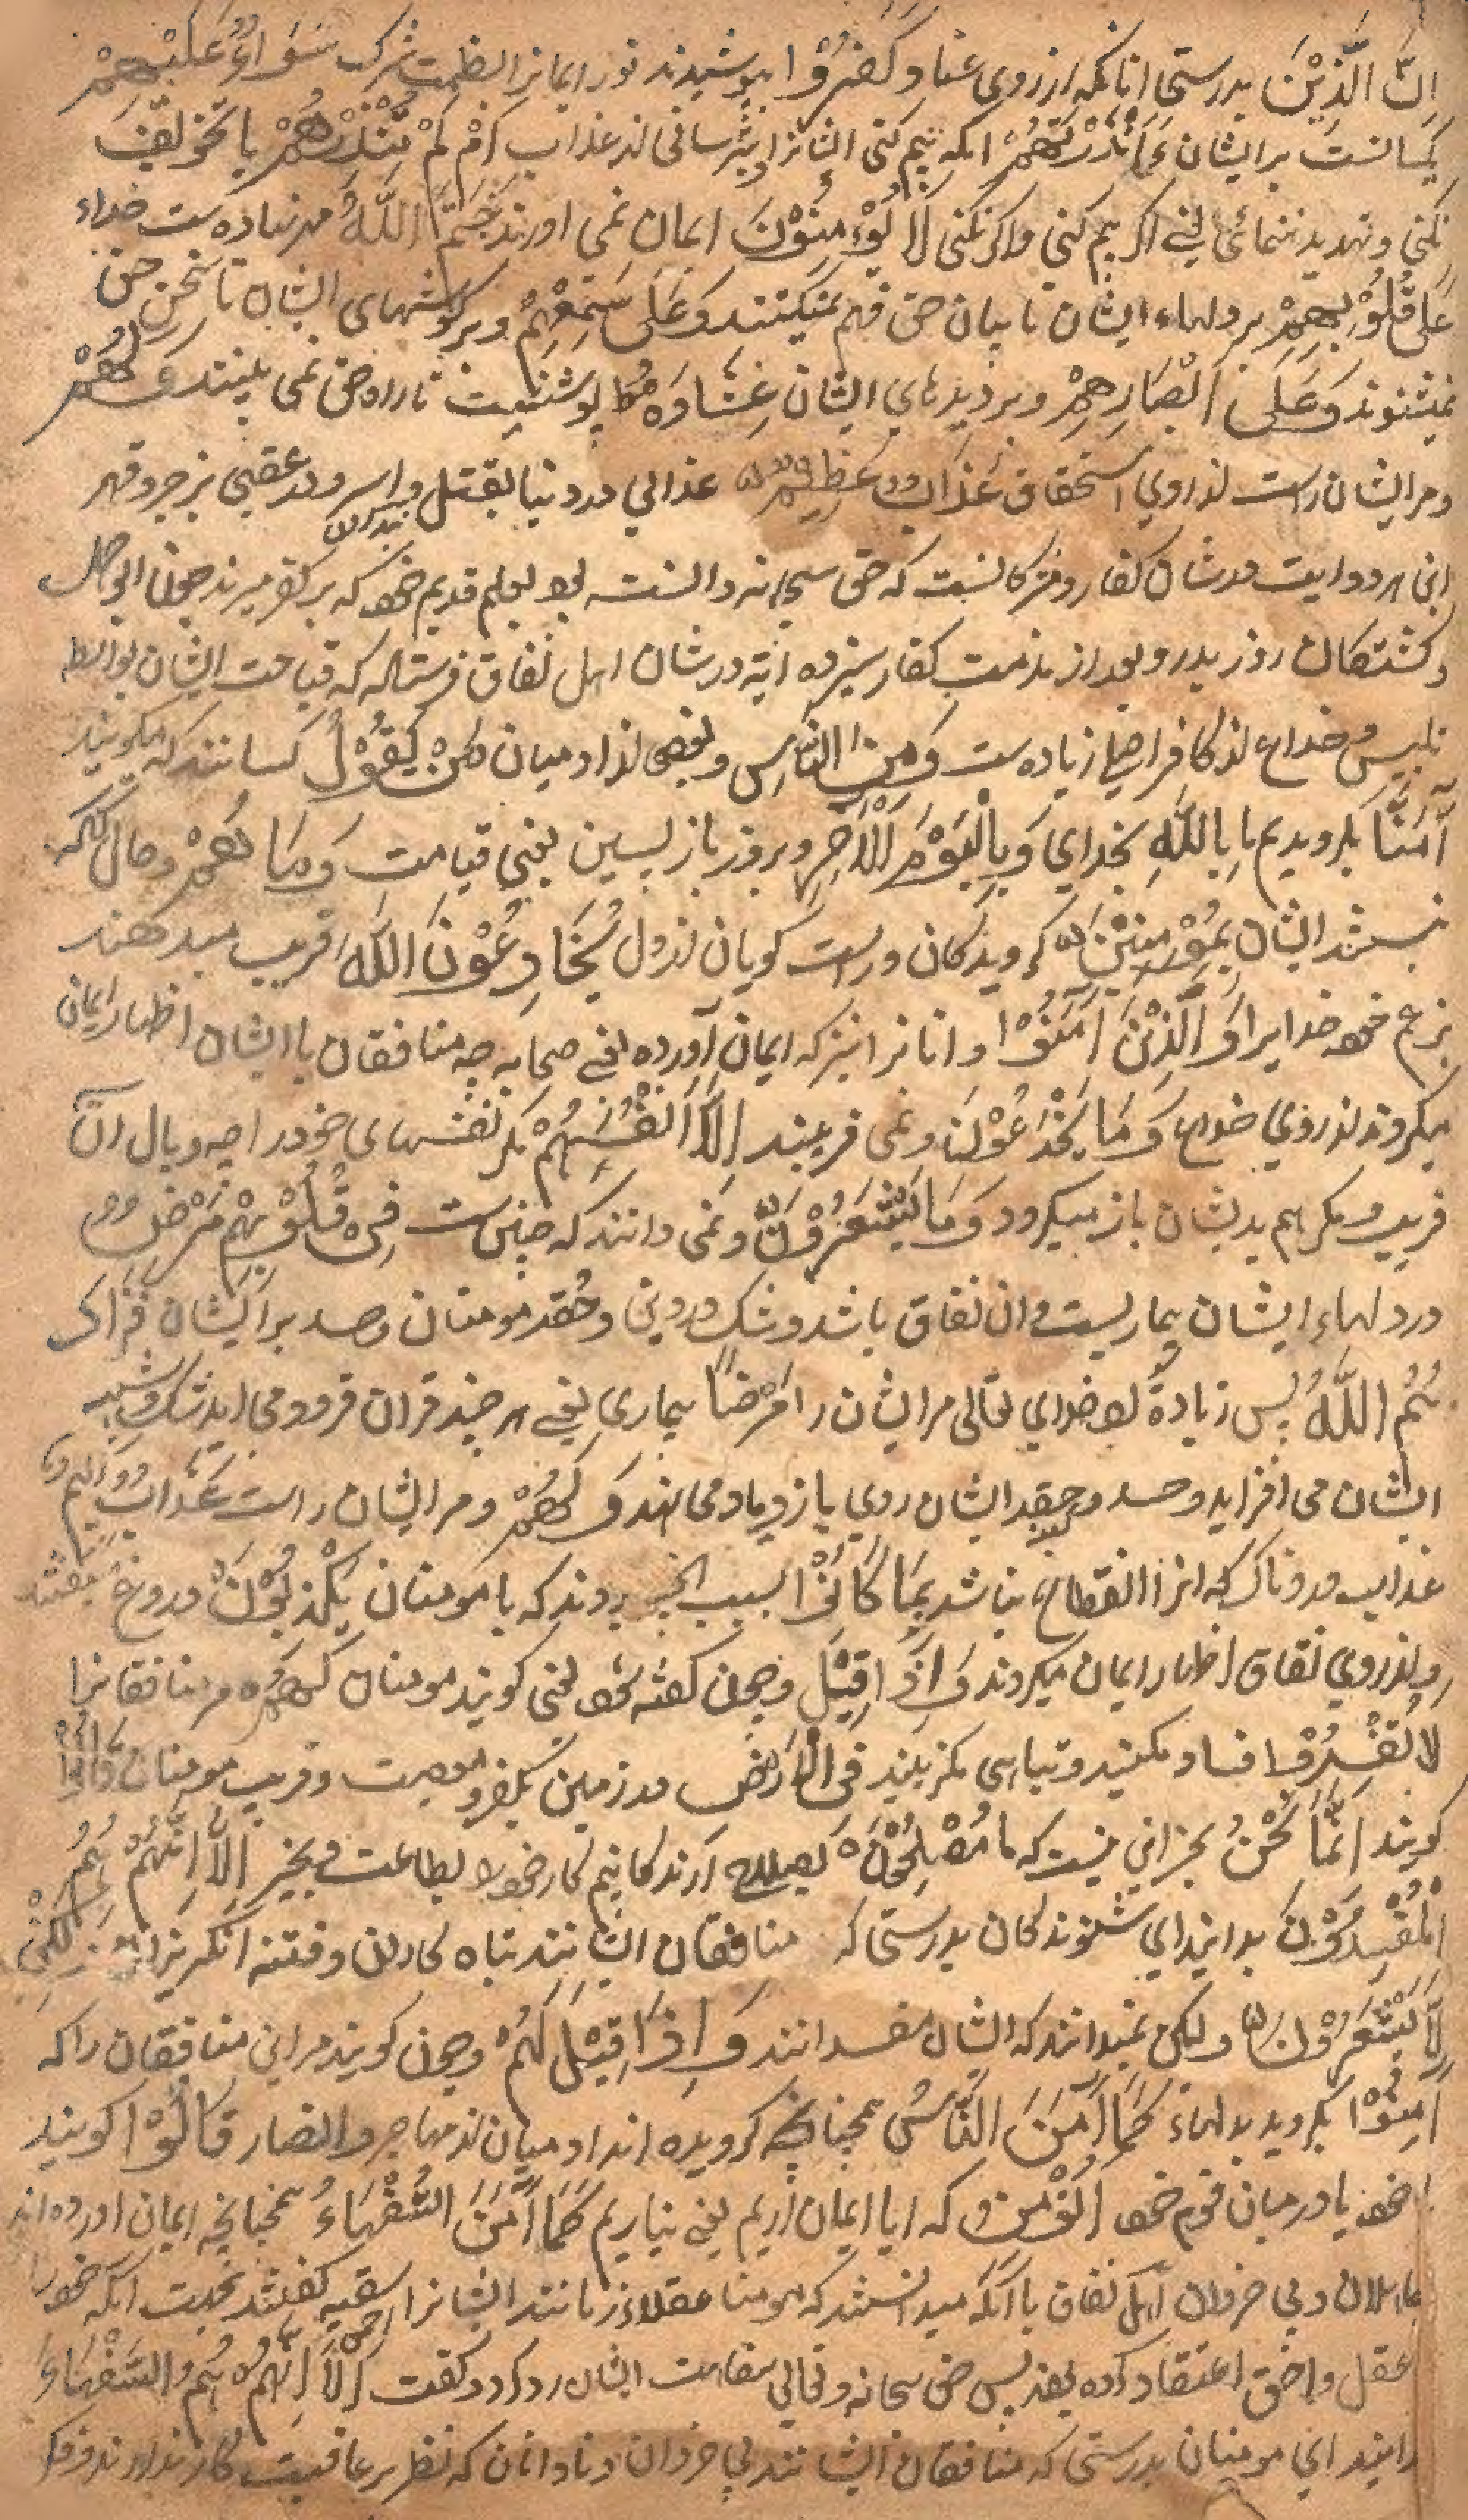 اِنَّ الَّذِیْنَ بدرستی انانکه از روی عناد کَفَرُوْا بپوشیدند نور ایمانرا بظلمت شرک سَوَاءٌ عَلَیْهِمْ
یکسانست بر ایشان ءَاَنْذَرْتَهُمْ انکه بیم کنی ایشانرا و بترسانی از عذاب اَمْ لَمْ تُنْذِرْهُمْ یا تخویف
نکنی و تهدید ننمائی یعنے اکر بیم کنی و اکر نکنی لَا یُؤْمِنُوْنَ ایمان نمی اورند خَتَمَ اللّٰهُ مهر نهاده ست خداء
عَلٰی قُلُوْبِهِمْ بر دلهاء ایشان تا بیان حق فهم نمیکنند وَعَلٰی سَمْعِهِمْ و بر کوشهای ایشان تا سخن حق
نمیشنوند وَعَلٰی اَبْصَارِهِمْ و بر دیدهای ایشان غِشَاوَةٌ پوششیست تا راه حق نمی بینند وَلَهُمْ
و مر ایشان راست از روی استحقاق عَذَابٌ عَظِیْمٌ عذابی در دنیا بقتل و اسر و در عقبی بزجر و قهر
این هر دو ایت در شان کفار و مشرکانست که حق سبحانه دانسته بود بعلم قدیم خود که بر کفر میرند چون ابو جهل
و کشتکان روز بدر و بعد از مذمت کفار سیزده آیة در شان اهل نفاق فرستاد که قباحت ایشان بواسط
تلبیس و خداع از کافران زیاده ست وَمِنَ النَّاسِ و بعضی از ادمیان مَنْ یَقُوْلُ کسانند که میکویند
اٰمَنَّا بکرویدیم ما بِاللّٰهِ بخدای وَبِالْیَوْمِ الْاٰخِرِ و بروز باز پسین یعنی قیامت وَمَا هُمْ و حال انکه
نیستند ایشان بِمُؤْمِنِیْنَ کرویدکان و راست کویان از دل یُخَادِعُوْنَ اللّٰهَ فریب میدهند
بزعم خود خدایرا وَالَّذِیْنَ اٰمَنُوْا و انانرا نیز که ایمان آورده یعنے صحابه چه منافقان با ایشان اظهار ایمان
میکردند از روی خداع وَمَا یَخْدَعُوْنَ و نمی فریبند اِلَّا اَنْفُسَهُمْ مکر نفسهای خود را چه وبال آن
فریب و مکر هم بدیشان باز میکردد وَمَا یَشْعُرُوْنَ و نمی دانند که چنین ست فِیْ قُلُوْبِهِمْ مَرَضٌ
در دلهاء ایشان بیماریست و ان نفاق باشد و شک درونی و حقد مومنان و حسد بر ایشان فَزَادَ
هُمُ اللّٰهُ پس زیاده کرد خدای تعالی مر ایشان را مَرَضًا بیماری یعنے هر چند قران فرود می اید شک و شبهه
ایشان می افزاید و حسد و حقد ایشان روی بازدیاد می نهد وَلَهُمْ و مر ایشان راست عَذَابٌ اَلِیْمٌ
عذاب دردناک که انرا انقطاع نباشد بِمَا كَانُوْا بسبب انچه بودند که با مومنان یَكْذِبُوْنَ دروغ میکفتند
و از روی نفاق اظهار ایمان میکردند وَاِذَا قِیْلَ و چون کفته شود یعنی کویند مومنان لَهُمْ مر منافقانرا
لَا تُفْسِدُوْا فساد مکنید و تباهی مکزینید فِی الْاَرْضِ در زمین بکفر و معصیت و فریب مومنان قَالُوْا
کویند اِنَّمَا نَحْنُ بجز این نیست که ما مُصْلِحُوْنَ بصلاح ارندکانیم کار خود را بطاعت و بخیر اَلَا اِنَّهُمْ هُمُ
الْمُفْسِدُوْنَ بدانید ای شنوندکان بدرستی که منافقان ایشانند تباه کاران و فتنه انکیزان وَلٰكِنْ
لَا یَشْعُرُوْنَ و لیکن نمیدانند که ایشان مفسدانند وَاِذَا قِیْلَ لَهُمْ و چون کویند مر این منافقان را که
اٰمِنُوْا بکروید بدلهاء كَمَا اٰمَنَ النَّاسُ همچنانچه کرویده اند ادمیان از مهاجر و انصار قَالُوْا کویند
خود یا در میان قوم خود اَنُؤْمِنُ که ایا ایمان اریم یعنے نیاریم كَمَا اٰمَنَ السُّفَهَاءُ همچنانچه ایمان اورده اند
جاهلان و بی خردان اهل نفاق با انکه میدانستند که مومنان عقلاء زمانند ایشانرا سفیه کفتند بجهت انکه خود را
عقل و احق اعتقاد کرده بودند پس حق سبحانه و تعالی سفاهت ایشان رد کرد و کفت اَلَا اِنَّهُمْ هُمُ السُّفَهَاءُ
دانید ای مومنان بدرستی که منافقان ایشانند بی خردان و نادانان که نظر بر عاقبت کار ندارند